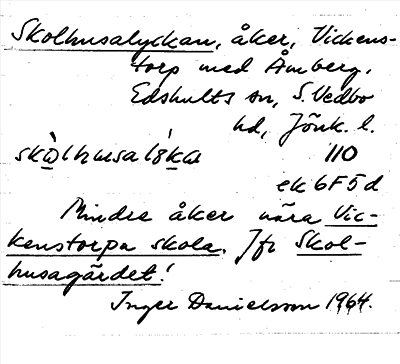 Skolhusalyckan, åker, Vickens-
torp med Åmberg.
Edshults sn, S. Vedbo
hd, Jönk. l.
110
ek 6F5d
Mindre åker nära Vic-
kenstorpa skola. Jfr Skol-
husagärdet!
Inger Danielsson 1964.